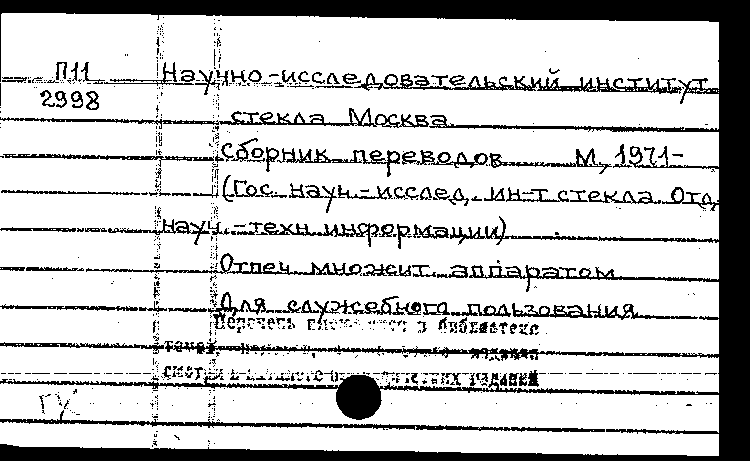 П11 Научно-исследовательский институт
2998
стекла Москва
Сборник переводов М., 1971-
(Гос. науч.-исслед. ин-т стекла. Отд.
науч.-техн. информации)
Отпеч. множит. аппаратом
Для служебного пользования
Перечень в библиотеке
издания
смотри в каталоге изданий
ГУ